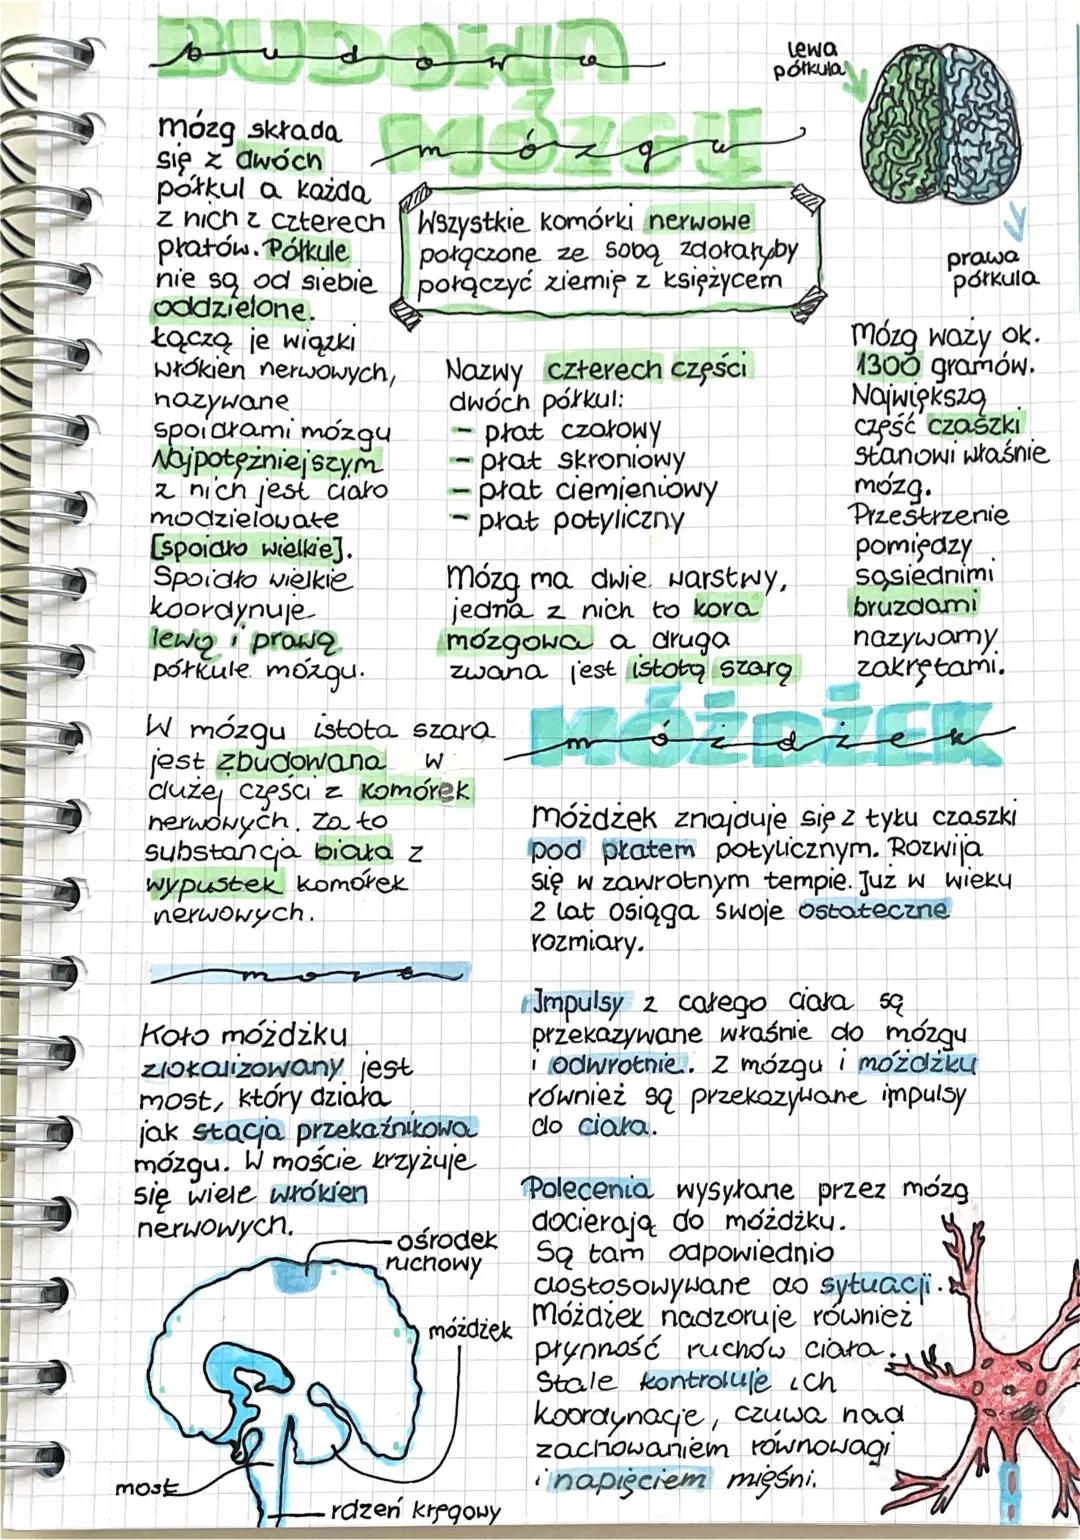 BUDOWA
budowa
MÓZGU
mózgu
lewa
półkula
prawa
półkula
mózg składa
się z dwóch
półkul a każda
z nich z czterech
płatów. Półkule
nie są od siebie
oddzielone.
Łączą je wiązki
włókien nerwowych,
nazywane
spoidłami mózgu
Najpotężniejszym
z nich jest ciało
modzielowate
[spoidło wielkie].
Spoidło wielkie
koordynuje
lewą i prawą
półkule mózgu.
Wszystkie komórki nerwowe
połączone ze sobą zdołałyby
połączyć ziemię z księżycem
Nazwy czterech części
dwóch półkul:
- płat czołowy
- płat skroniowy
- płat ciemieniowy
- płat potyliczny
Mózg ma dwie warstwy,
jedna z nich to kora
mózgowa a druga
zwana jest istotą szarą
Mózg waży ok.
1300 gramów.
Największą
część czaszki
stanowi właśnie
mózg.
Przestrzenie
pomiędzy
sąsiednimi
bruzdami
nazywamy
zakrętami.
W mózgu istota szara
jest zbudowana w
dużej części z komórek
nerwowych. Za to
substancja biała z
wypustek komórek
nerwowych.
most
Koło móżdżku
zlokalizowany jest
most, który działa
jak stacja przekaźnikowa
mózgu. W moście krzyżuje
się wiele włókien
nerwowych.
MÓŻDŻEK
móżdżek
Móżdżek znajduje się z tyłu czaszki
pod płatem potylicznym. Rozwija
się w zawrotnym tempie. Już w wieku
2 lat osiąga swoje ostateczne
rozmiary.
Impulsy z całego ciała są
przekazywane właśnie do mózgu
i odwrotnie. Z mózgu i móżdżku
również są przekazywane impulsy
do ciała.
Polecenia wysyłane przez mózg
docierają do móżdżku.
Są tam odpowiednio
dostosowywane do sytuacji.
Móżdżek nadzoruje również
płynność ruchów ciała.
Stale kontroluje ich
koordynację, czuwa nad
zachowaniem równowagi
i napięciem mięśni.
ośrodek
ruchowy
móżdżek
most
rdzeń kręgowy